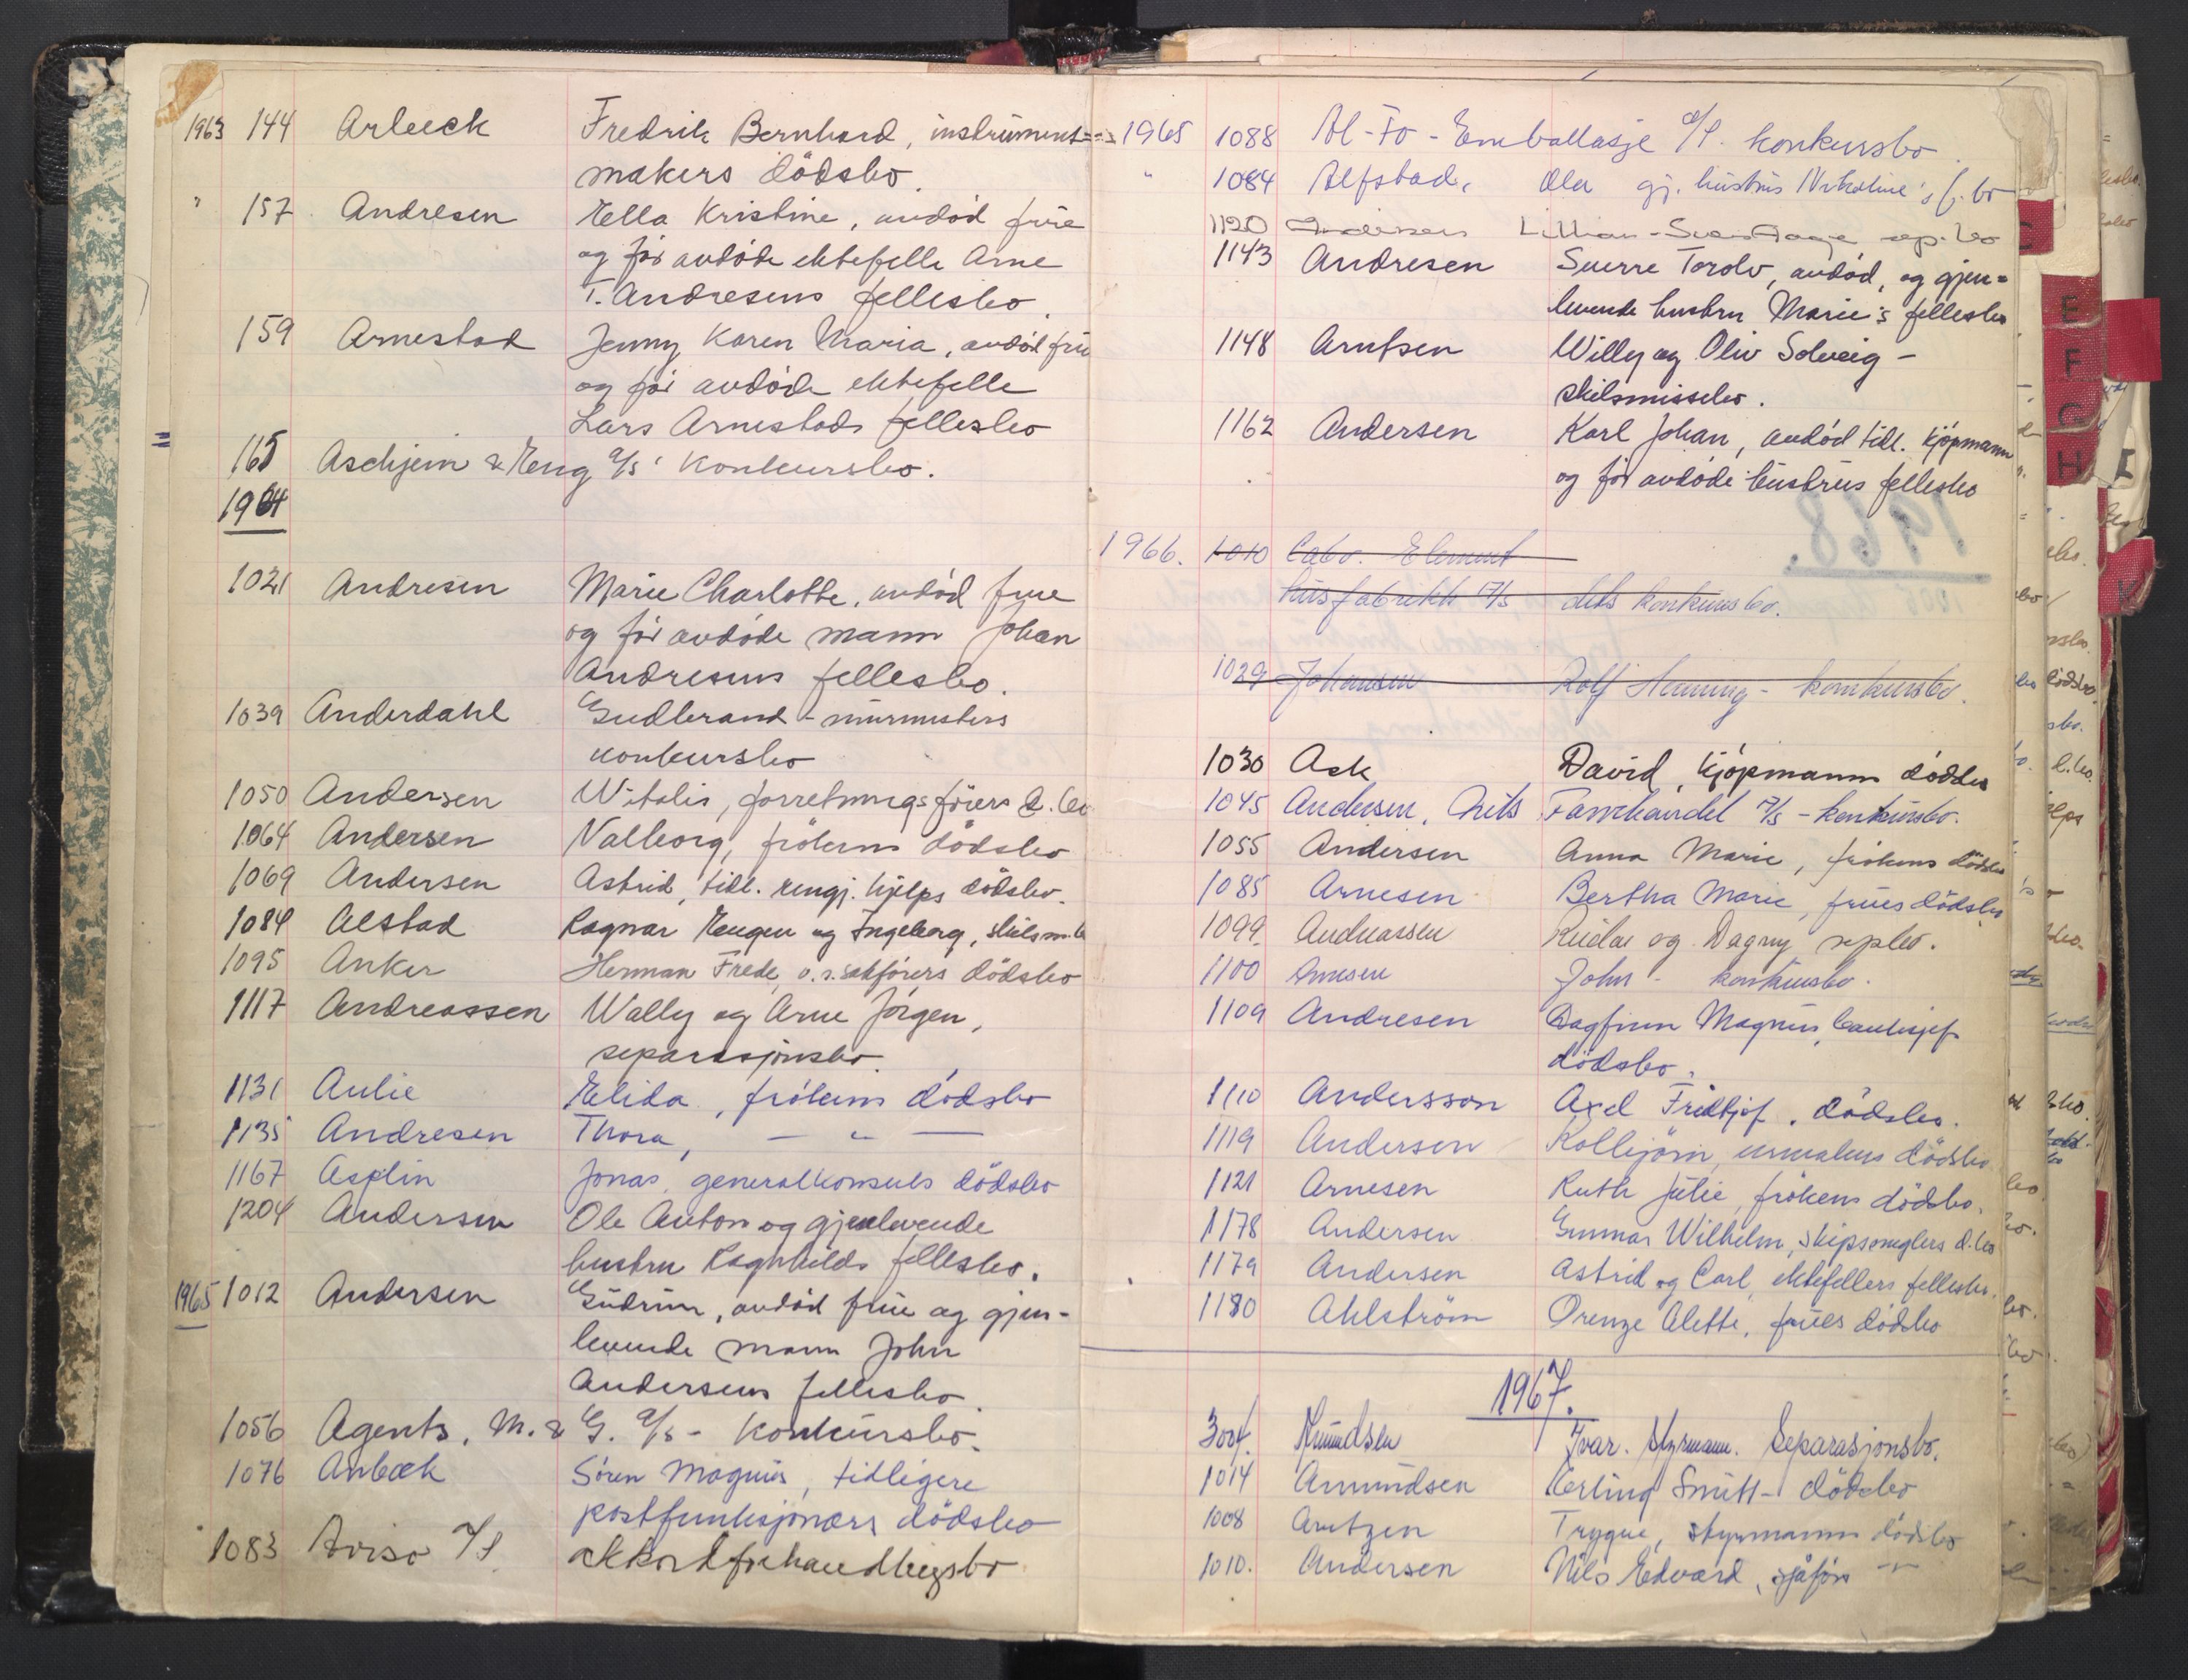 1963 144 Arbeck Fredrik Bernhard, instrument=
makers dödsbo.
" 157 Andresen Ella Kristine, avdöd frue
og før avdöde ektefelle Arne
T. Andresens fellesbo.
159 Arnestad Jenny Karen Maria, avdöd frue
og før avdöde ektefelle
Lars Arnestads fellesbo
165 Aschjem & Eng a/s' Konkursbo.
1964
1021 Andresen Marie Charlotte, avdöd frue
og før avdöde mann Johan
Andresens fellesbo.
1039 Anderdahl Gudbrand - murmesters
konkursbo
1050 Andersen Vitalis, forretningsförers d.bo
1064 Andersen Valborg, frökens dödsbo
1069 Andersen Astrid, tidl. rengj. hjelps dödsbo.
1084 Alstad Ragnar Eugen og Ingeborg, skilsm.b
1095 Anker Herman Frede, o.r.sakförers dödsbo
1117 Andreassen Wally og Arne Jörgen,
separasjonsbo.
1131 Aulie Elida, frökens dödsbo
1135 Andresen Thora, — " —
1167 Asplin Jonas, generalkonsuls dödsbo
1204 Andersen Ole Anton og gjenlevende
hustru Ragnhilds fellesbo.
1965 1012 Andersen Gudrun, avdöd frue og gjen-
levende mann John
Andersens fellesbo.
1056 Agents, M. & G. a/s - Konkursbo.
1076 Anbæk Sören Magnus, tidligere
postfunksjonærs dödsbo
1083 Aviso A/S. akkordforhandlingsbo
1965 1088 Al-Fo-Emballasje A/S. konkursbo.
" 1084 Alfstad, Ola gj. hustrus Nikoline's f.bo
1120 Andersen Lillian - Svein Aage sep.bo
1143 Andresen Sverre Torolv, avdöd, og gjen=
levende hustru Marie's fellesbo
1148 Arntsen Willy og Oliv Solveig -
skilsmissebo.
1162 Andersen Karl Johan, avdöd tidl. kjöpmann
og før avdöde hustrus fellesbo
1966. 1010 Cabo. Element
husfabrikk A/S dets konkursbo.
1029 Johansen Rolf Henning - konkursbo.
1030 Ask David, kjöpmanns dödsbo
1045 Andersen, Nils Farvehandel A/S - konkursbo.
1055 Andersen Anna Marie, frökens dödsbo
1085 Arnesen Bertha Marie, frues dödsbo
1099. Andreassen Reidar og Dagny sepbo.
1100 Arnesen John - konkursbo.
1109 Andresen Dagfinn Magnus, banksjef
dödsbo.
1110 Andersson Axel Fridtjof, dödsbo.
1119 Andersen Kolbjörn, urmakers dödsbo
1121 Arnesen Ruth Julie, frökens dödsbo.
1178 Andersen Gunnar Wilhelm, skipsmeglers d.bo
1179 Andersen Astrid og Carl, ektefellers fellesbo.
1180 Ahlström Orenze Alette, frues dödsbo
1967.
3004. Amundsen Ivar. Styrmann. Separasjonsbo.
1014 Amundsen Erling Smitt - dödsbo
1008 Arntzen Trygve, styrmanns dödsbo
1010. Andersen Nils Edvard, sjåförs —"—
E
F
G
H
I
K